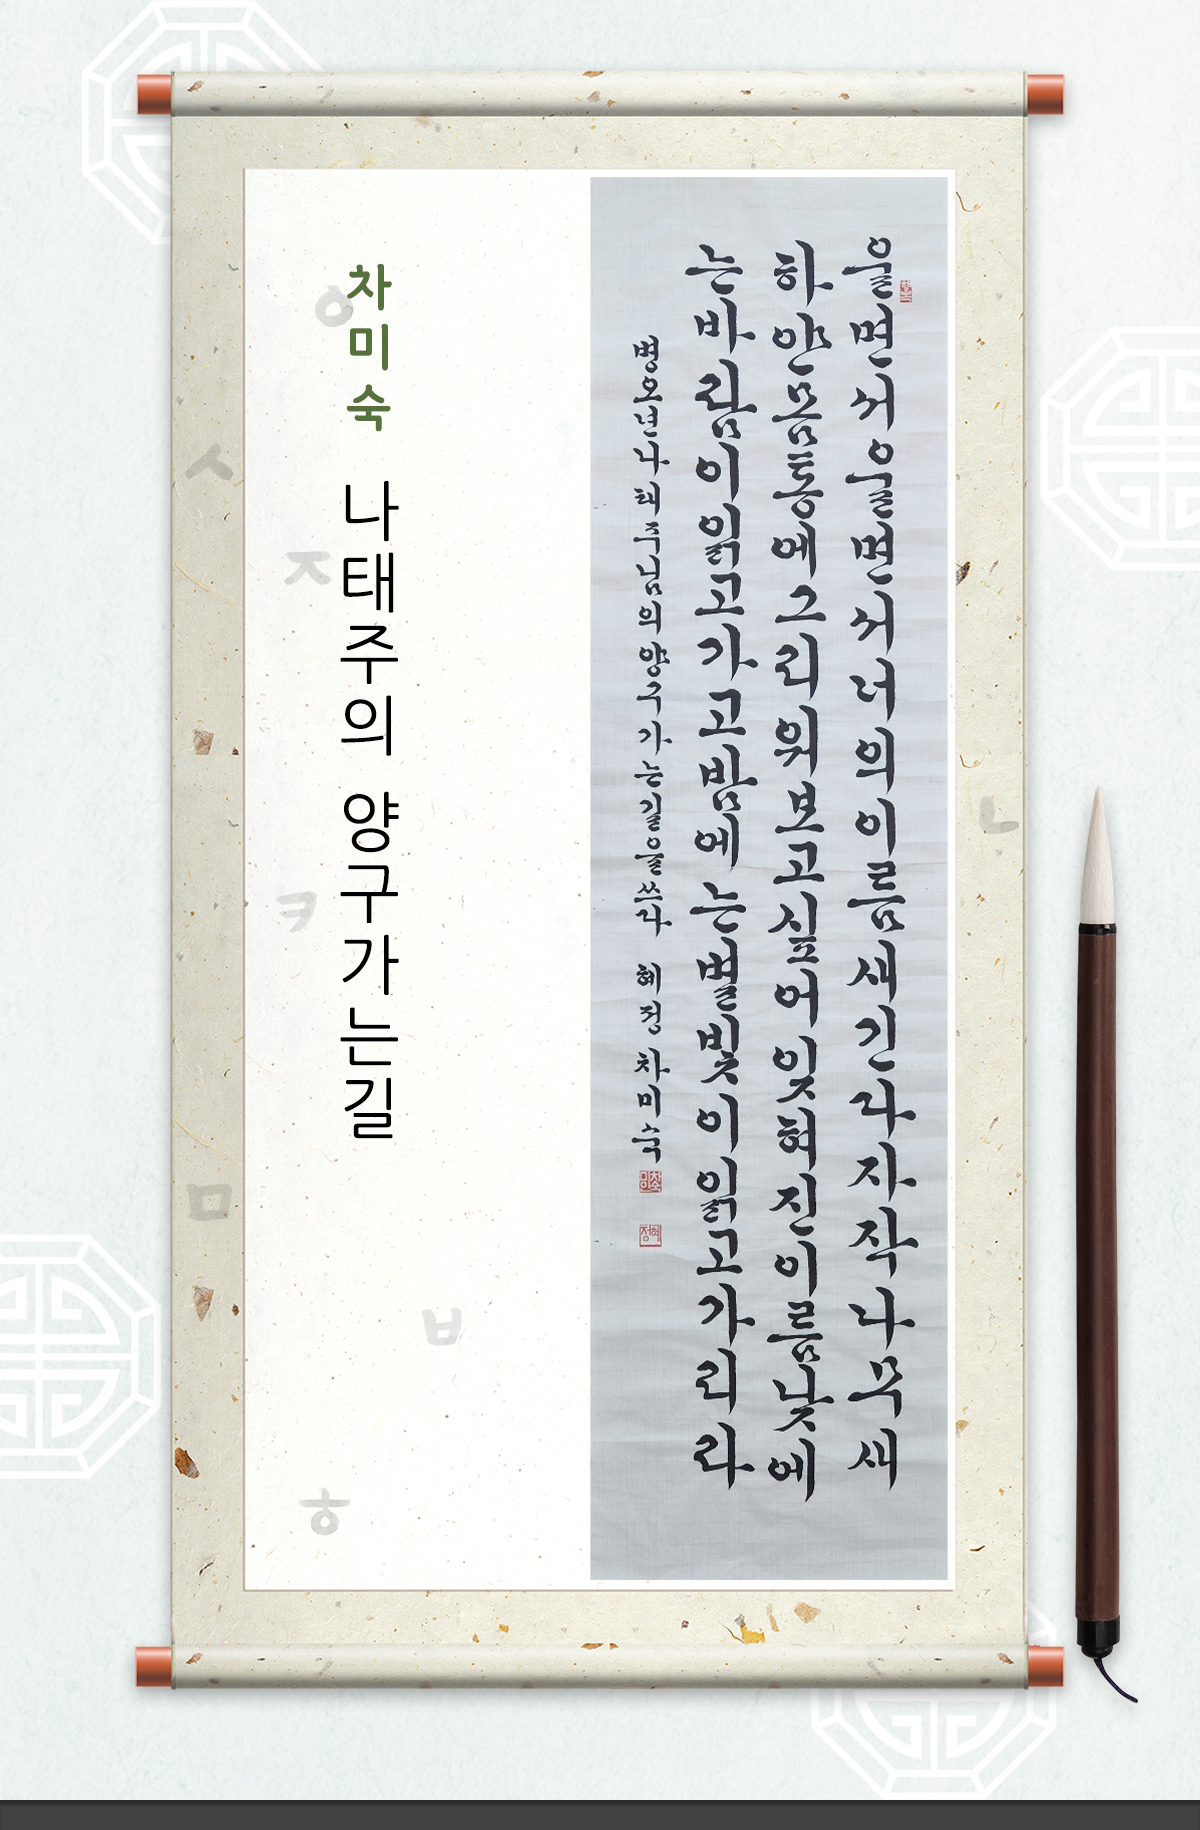 울면서울면서너의이름새긴다자작나무새
하얀몸통에그리워보고싶어잊혀진이름낮에
는바람이읽고가고밤에는별빛이읽고가리라
병오년나태주님의양구가는길을쓰다 혜정 차미숙
차미숙 나태주의 양구가는길